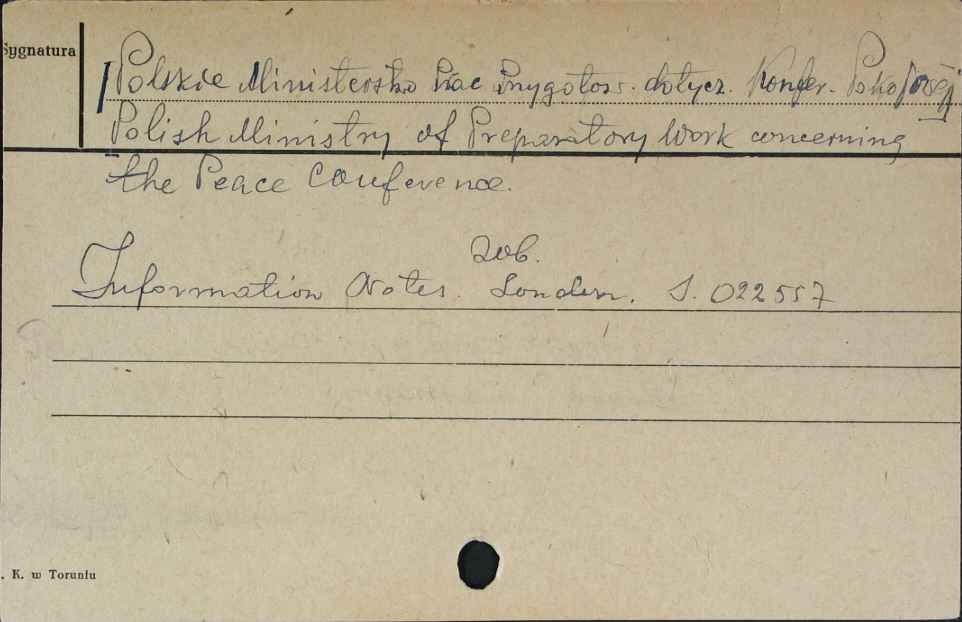 Sygnatura
[Polskie Ministerstwo Prac Przygotow. dotycz. Konfer. Pokojowej]
Polish Ministry of Preparatory Work concerning
the Peace Conference.
zob.
Information Notes. London. S. 022557
. K. w Toruniu